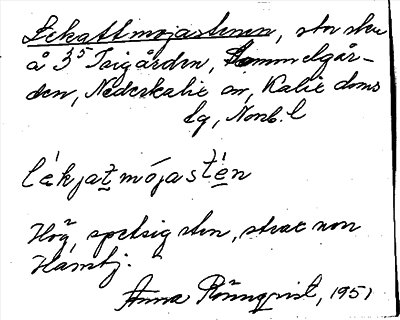 Lekattmojastenen, stor sten
å 3⁵ Toigården, Hammelgår-
den, Nederkalix sn, Kalix doms
lg, Norrb. l
lékjat̠mójasté̠n
Hög, spetsig sten, strax non
Hamtj.
Anna Rönnqvist, 1951